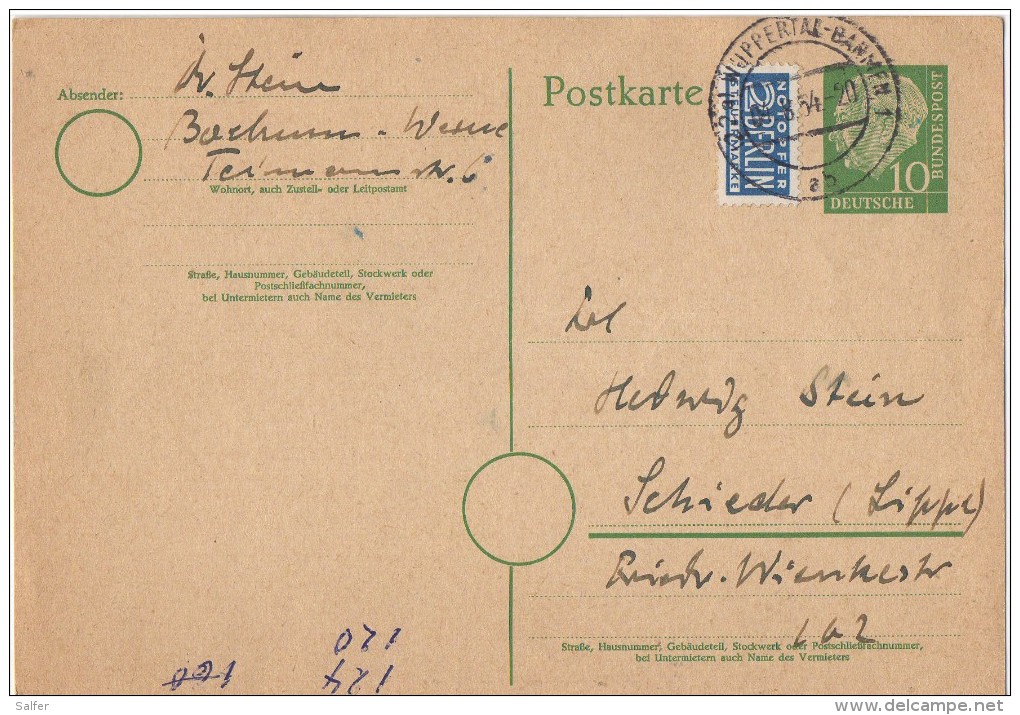 Absender:
Dr. Stein
Bochum - Werne
Wohnort, auch Zustell- oder Leitpostamt
Straße, Hausnummer, Gebäudeteil, Stockwerk oder
Postschließfachnummer,
bei Untermietern auch Name des Vermieters
Postkarte
NOTOPFER
2 BERLIN
STEUERMARKE
WUPPERTAL-BARMEN 1
.54.-20
ab
10
DEUTSCHE
BUNDESPOST
Hedwig Stein
Schieder (Lippe)
Friedr. Wienkestr
Straße, Hausnummer, Gebäudeteil, Stockwerk oder Postschließfachnummer,
bei Untermietern auch Name des Vermieters
120
124
100
Salfer
delcampe.net